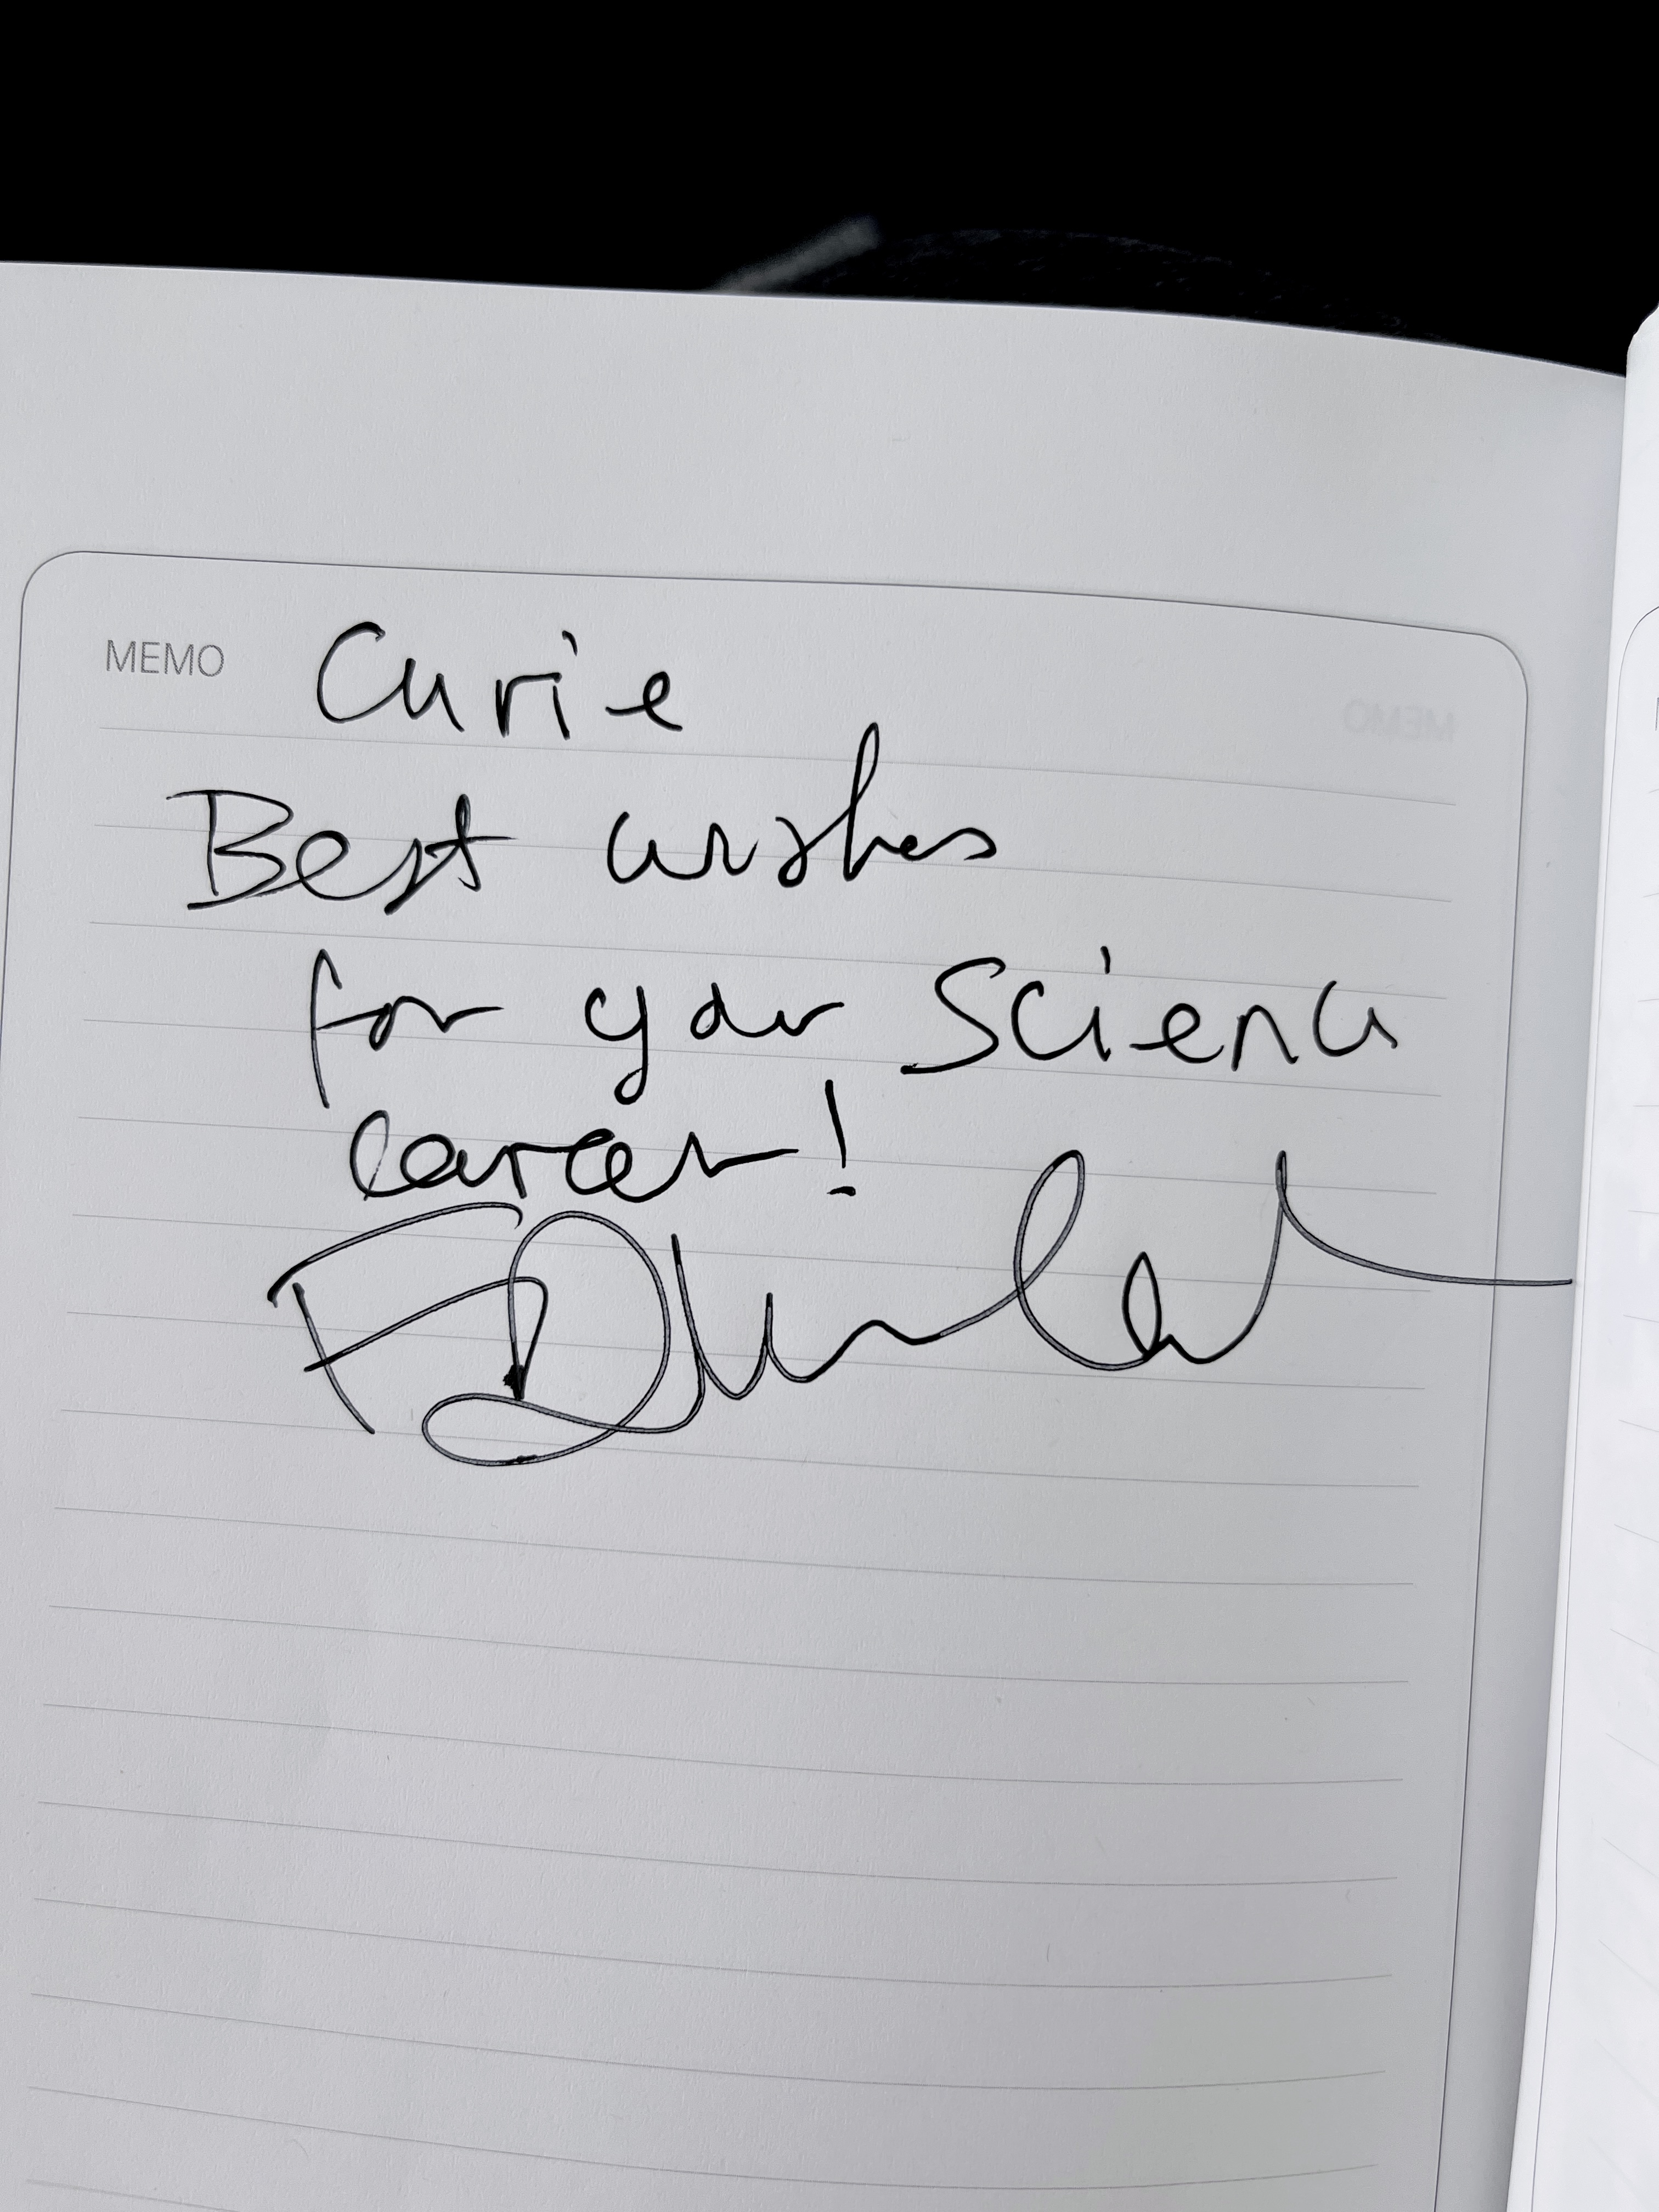 MEMO Curie
Best wishes
for your Science
career!